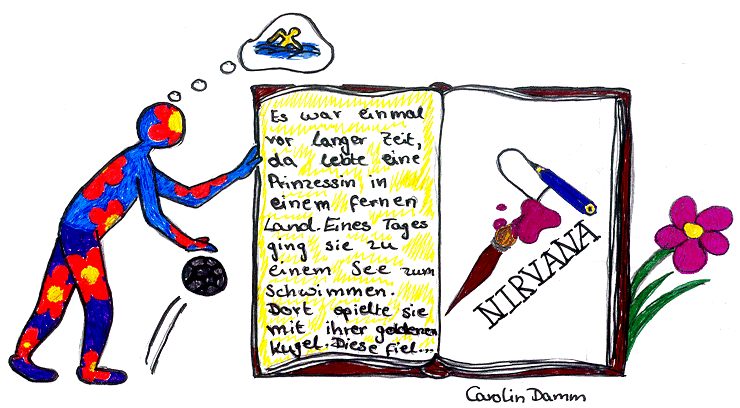 Es war einmal
vor langer Zeit,
da lebte eine
Prinzessin in
einem fernen
Land. Eines Tages
ging sie zu
einem See zum
Schwimmen.
Dort spielte sie
mit ihrer goldenen
Kugel. Diese fiel...
NIRVANA
Carolin Damm